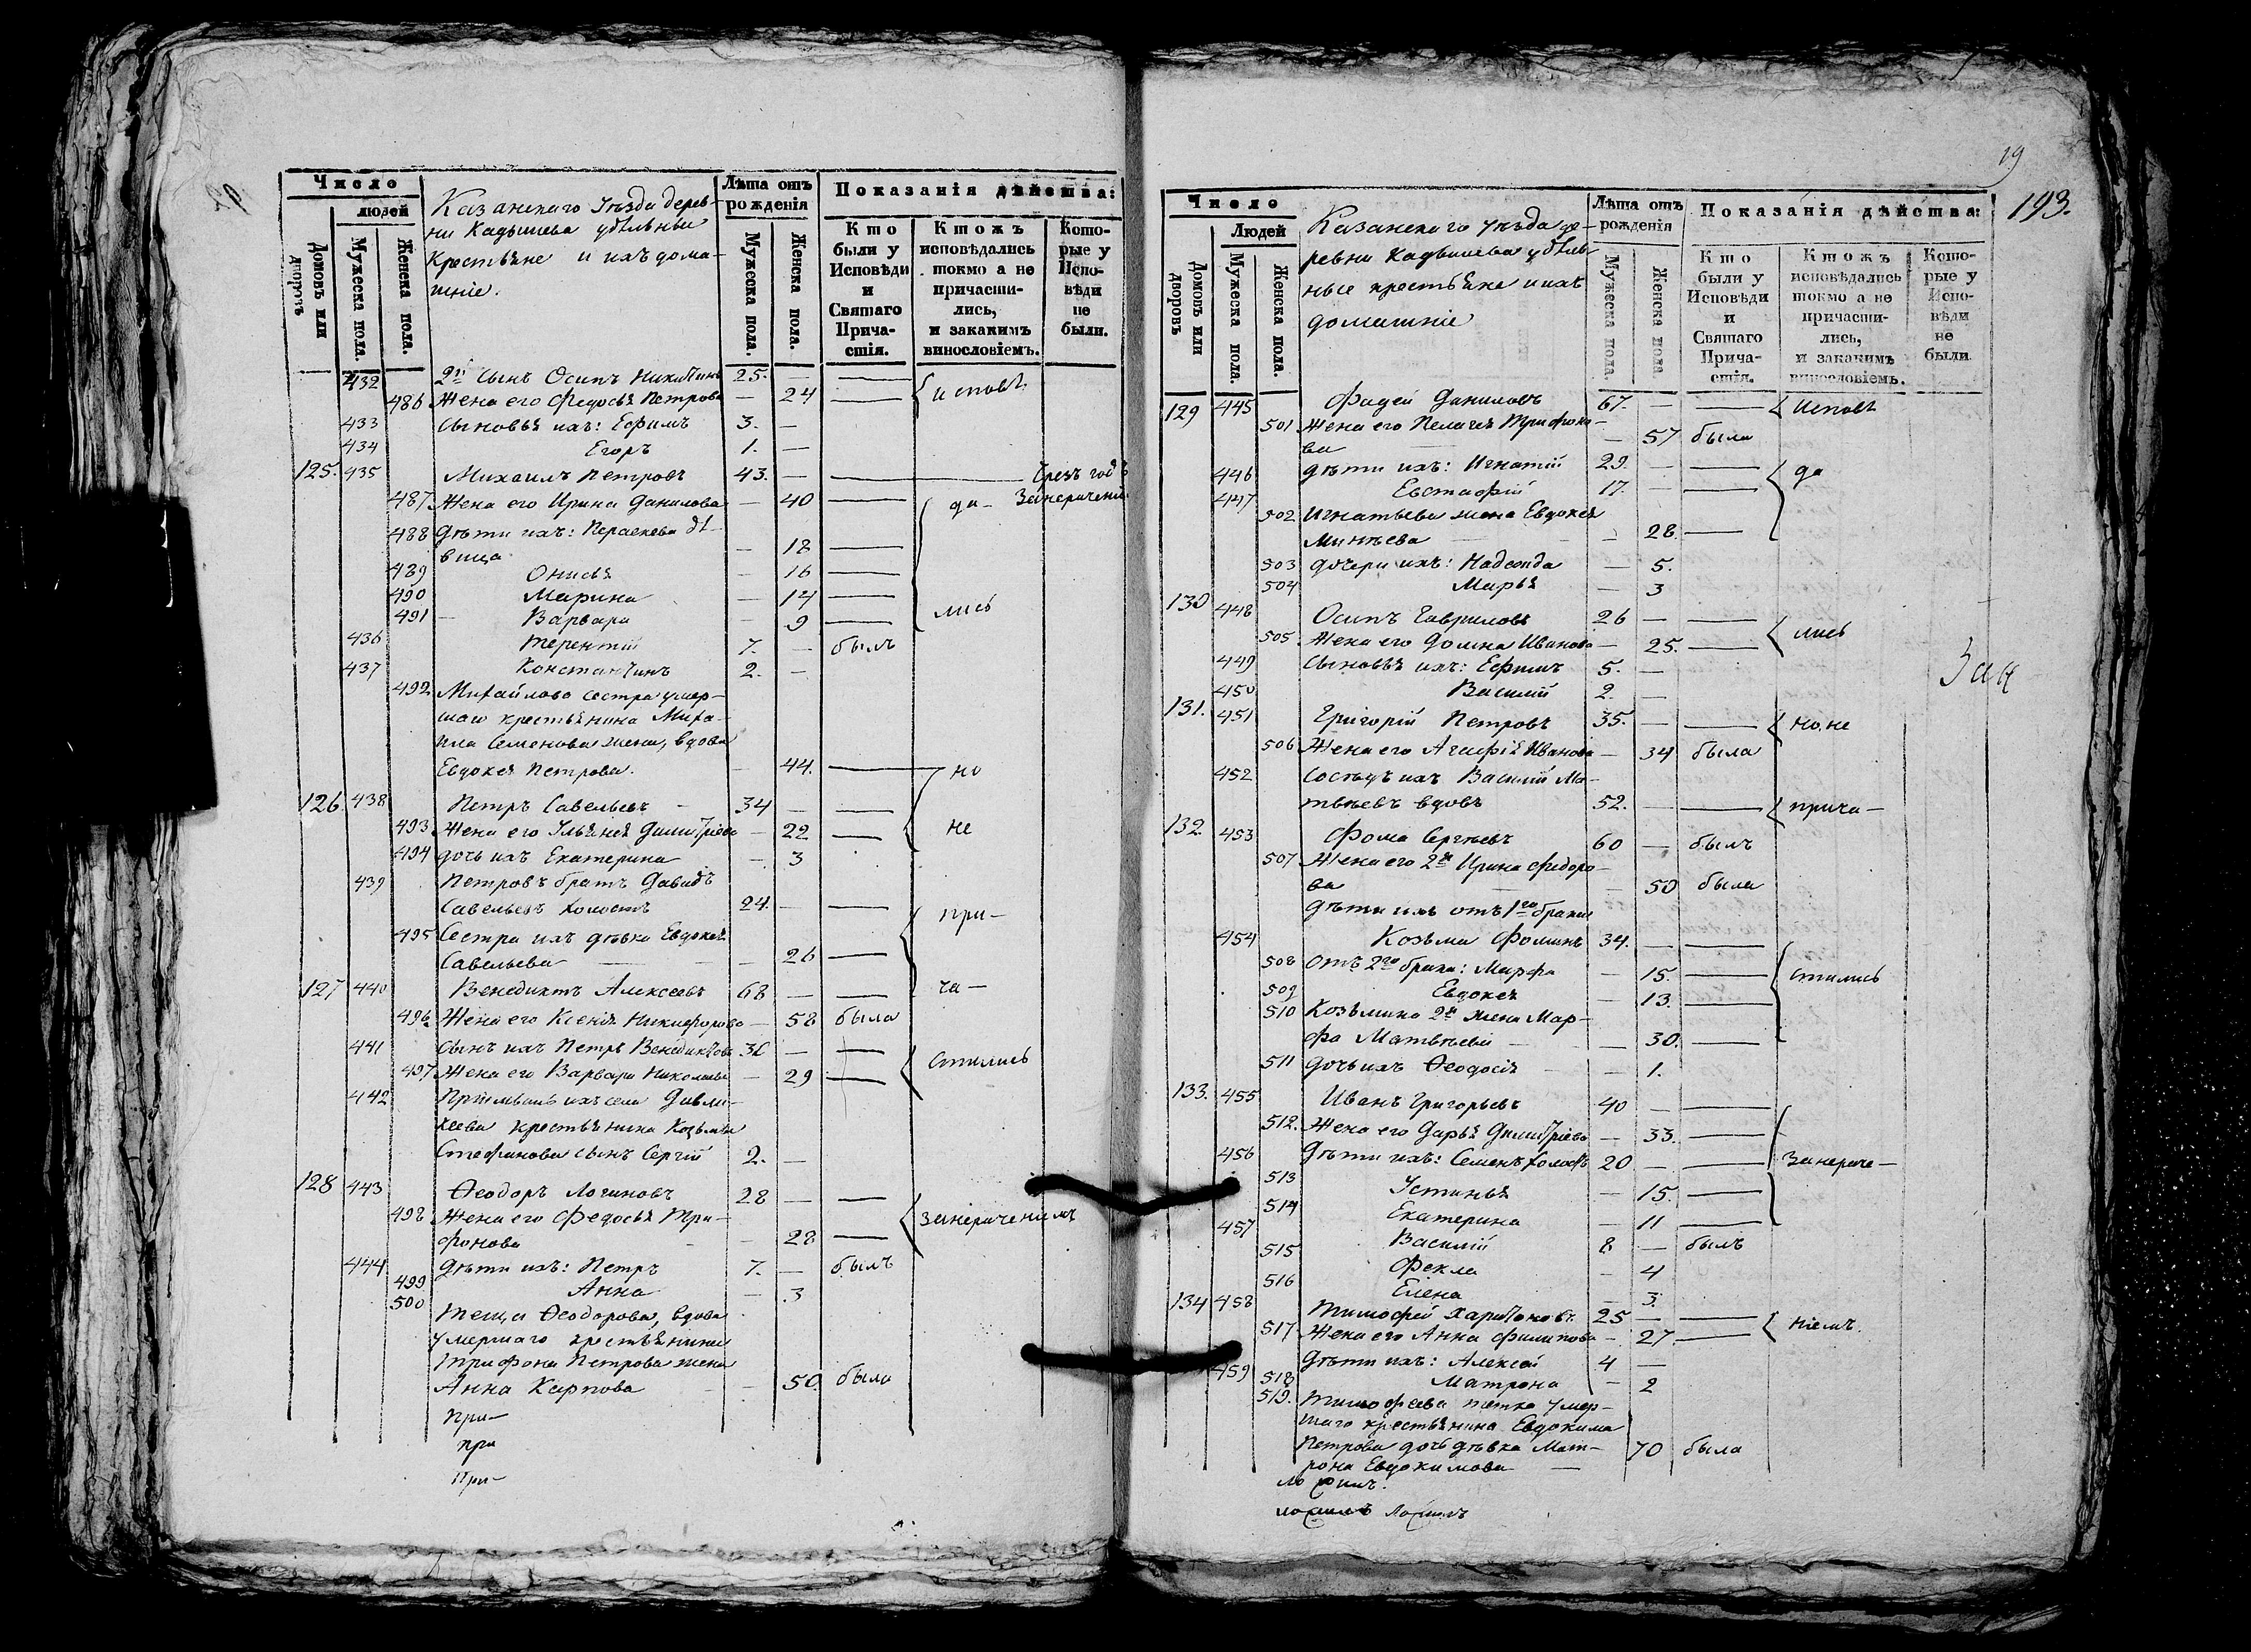 Число
людей
Домовъ или дворовъ
Мужеска пола.
Женска пола.
Казанскаго Уѣзда дерев-
ни Кадышева удѣльныи
крестьяне и ихъ дома-
шніе.
Лѣта отъ рожденія
Мужеска пола.
Женска пола.
Показанія дѣйства:
Кто были у Исповѣди и Святаго Прича- стія.
Ктожъ исповѣдались токмо а не причасти- лись, и закакимъ винословіемъ.
Кото- рые у Испо- вѣди не были.
432 2й сынъ Осипъ Никитинъ 25. —
486 Жена его Федосья Петрова — 24 исповѣ
433 Сыновья ихъ: Ефимъ 3. —
434 Егоръ 1. —
125. 435 Михаилъ Петровъ 43. — Чрезъ годъ
487 Жена его Ирина Данилова — 40 да- Занераченіе
488 Дѣти ихъ: Параскева дѣ-
вица — 18
489 Онисья — 16
490 Марина — 14
491 Варвара — 9 лись
436 Терентій 7. — былъ
437 Константинъ 2. —
492 Михайлова сестра умер-
шаго крестьянина Миха-
ила Семенова жена, вдова
Евдокея Петрова. — 44. но
126. 438 Петръ Савельевъ 34 —
493 Жена его Ульянея Димитріева — 22 не
494 дочь ихъ Екатерина — 3
439 Петровъ братъ Давидъ
Савельевъ холостъ 24. — при-
495 Сестра ихъ дѣвка Евдокея
Савельева — 26
127 440 Венедиктъ Алексеевъ 68 — ча-
496 Жена его Ксенія Никифорова — 58 была
441 сынъ ихъ Петръ Венедиктовъ 36 —
497 Жена его Варвара Николаева — 29 стились
442 Пріимышъ ихъ села
крестьянина Козьмы
Стефанова сынъ Сергій 2. —
128 443 Ѳеодоръ Логиновъ 28 —
498 Жена его Федосья Три-
фонова — 28 занераченіемъ
444 Дѣти ихъ: Петръ 7. — былъ
499 Анна — 3
500 теща Ѳеодорова, вдова
умершаго крестьянина
Трифона Петрова жена
Анна Карпова — 50. была
При-
при
При-
19
193.
Число
Людей
Домовъ или дворовъ
Мужеска пола.
Женска пола.
Казанскаго Уѣзда де-
ревни Кадышева удѣль-
ные крестьяне и ихъ
домашніе
Лѣта отъ рожденія
Мужеска пола.
Женска пола.
Показанія дѣйства:
Кто были у Исповѣди и Святаго Прича- стія.
Ктожъ исповѣдались токмо а не причасти- лись, и закакимъ винословіемъ.
Кото- рые у Испо- вѣди не были
129 445 Фадей Даниловъ 67. — Исповѣ
501 Жена его Пелагея Трифоно-
ва — 57 была
446 дѣти ихъ: Игнатій 29. — да
447 Евстафій 17. —
502 Игнатьева жена Евдокея
Минѣева — 28.
503 дочери ихъ: Надежда — 5.
504 Марья — 3
130 448 Осипъ Гавриловъ 26 —
505 Жена его Домна Иванова — 25. лись
449 Сыновья ихъ: Ефимъ 5. —
450 Василій 2. —
131. 451 Григорій Петровъ 35. — но, не
506 Жена его Агафія Иванова — 34 была
452 Сосѣдъ ихъ Василій Ма-
твѣевъ вдовъ 52. — прича-
132 453 Фома Сергѣевъ 60 — былъ
507 Жена его 2я Ирина Федоро-
ва — 50 была
Дѣти ихъ отъ 1го брака
454 Козьма Фоминъ 34. —
508 Отъ 2го брака: Марфа — 15. стились
509 Евдокея — 13.
510 Козьмина 2я жена Мар-
фа Матвѣева — 30.
511 дочь ихъ Ѳеодосія — 1.
133. 455 Иванъ Григорьевъ 40 —
512. Жена его Дарья Димитріева — 33.
456 Дѣти ихъ: Семенъ холостъ 20 — Занераче-
513 Устинья — 15.
514 Екатерина — 11
457 Василій 8 — былъ
515 Фекла — 4
516 Елена — 3.
134 458 Тимофей Харитоновъ 25 — ніемъ.
517 Жена его Анна Филипова — 27.
459 Дѣти ихъ: Алексей 4 —
518 Матрона — 2
519. Тимофеева тетка умер-
шаго крестьянина Евдокима
Петрова дочь дѣвка Мат-
рона Евдокимова — 70 была